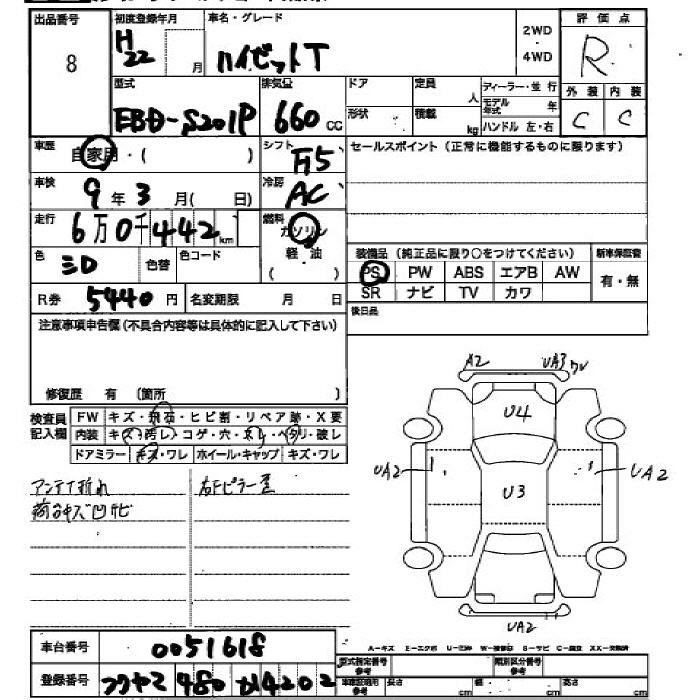 出品番号 初度登録年月 車名・グレード 2WD 評価点
8 H22 月 ハイゼットT 4WD R
型式 排気量 ドア 定員 ディーラー・並行 外装 内装
EBD-S201P 660 CC 形状 人 モデル年式 年 C C
積載 kg ハンドル 左・右
車歴 自家用・( ) シフト F5 セールスポイント (正常に機能するものに限ります)
車検 9年3月( 日) 冷房 AC
走行 6万0千442km 燃料 ガソリン
色 シロ 色替 色コード 軽・油 ( ) 装備品 (純正品に限り○をつけてください) 新車保証書
PS PW ABS エアB AW 有・無
R券 5440円 名変期限 月 日 SR ナビ TV カワ
注意事項申告欄(不具合内容等は具体的に記入して下さい) 後日品
修復歴 有 〔箇所 〕
検査員記入欄 FW キズ・飛石・ヒビ割・リペア跡・X要
内装 キズ・汚レ・コゲ・穴・スレ・ヘタリ・破レ
ドアミラー キズ・ワレ ホイール・キャップ キズ・ワレ
アンテナ折れ 右Fピラー歪
荷台キズ凹サビ
A2 UA3 ワレ
U4
UA2 U3 UA2
UA2
車台番号 0051618
A-キズ E-エクボ U-凹み W-補修跡 S-サビ C-腐食 XX-交換済
登録番号 フクヤマ 480 4202 型式指定番号 参考 類別区分番号 参考
車庫証明用 参考 長さ cm 幅 cm 高さ cm